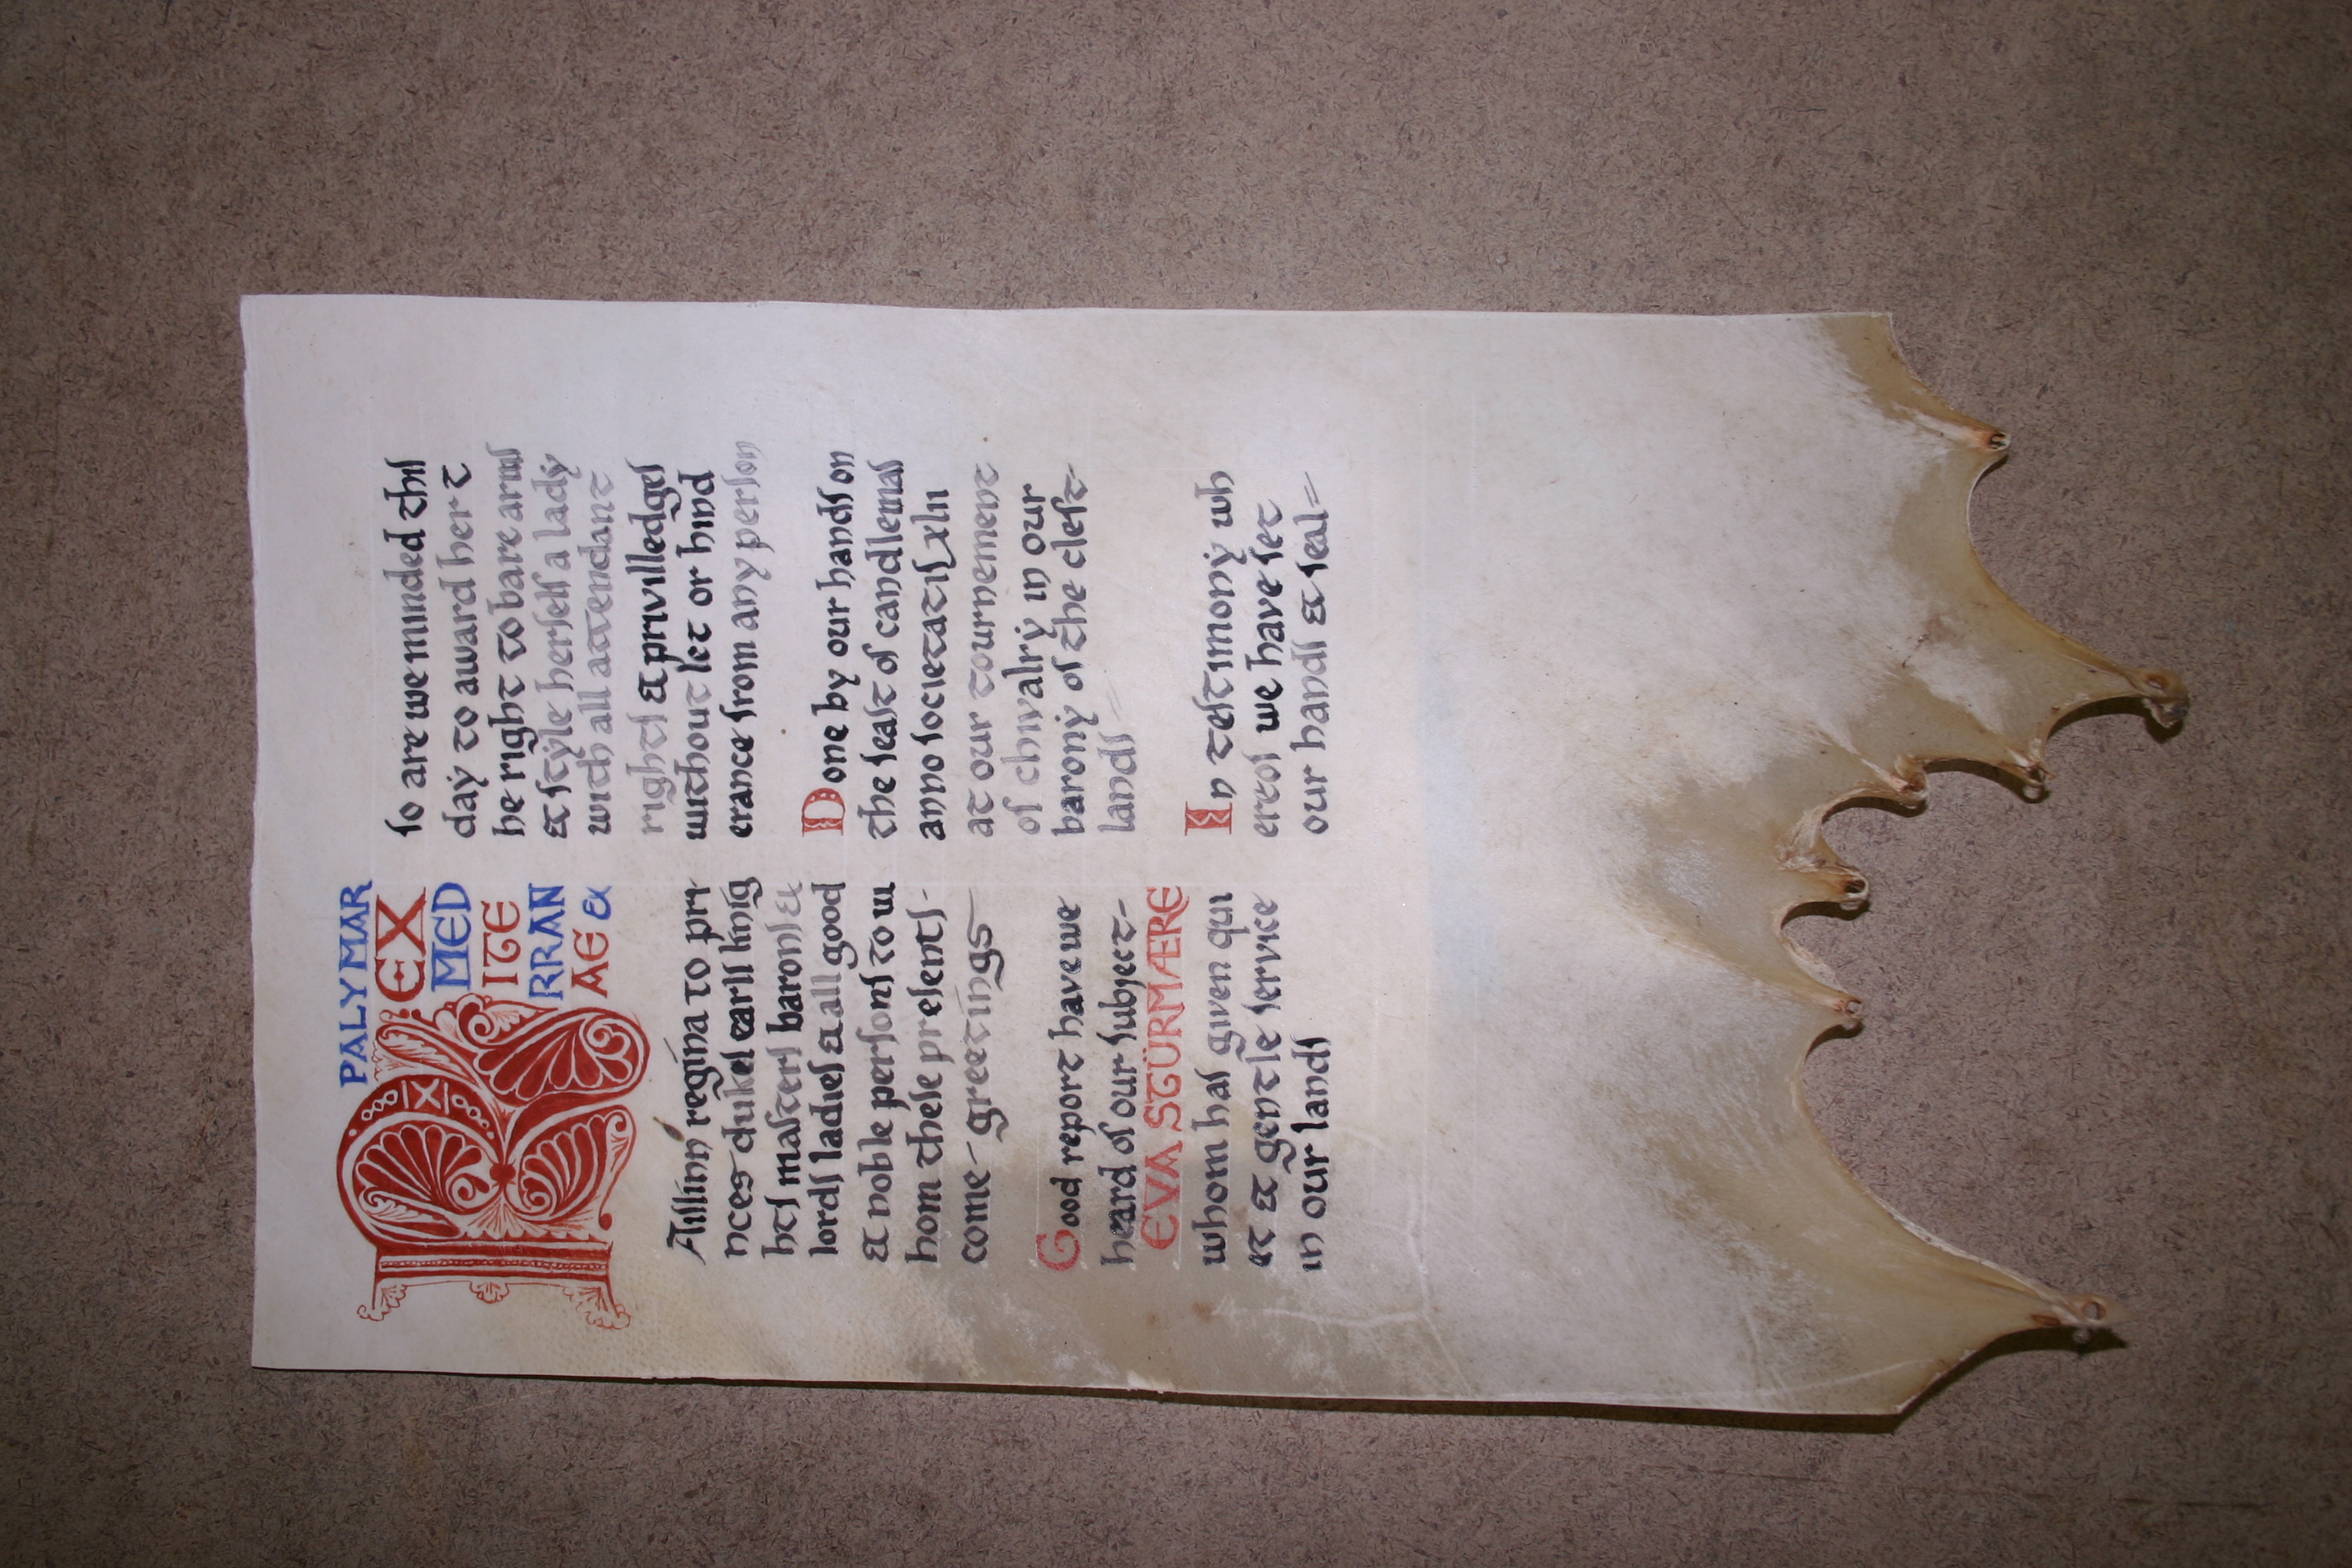 PALYMAR
REX
MED
ITE
RRAN
AE &
Aiſlinn regina to pri-
nces dukeſ earlſ knig
htſ maſterſ baronſ &
lordſ ladieſ & all good
& noble perſonſ to w
hom theſe preſentſ-
come- greetings
Good report have we
heard of our ſubject-
EVA STÜRMÆRE
whom haſ given qui
et & gentle ſervice
in our landſ
ſo are we minded thiſ
day to award her t
he right to bare armſ
& ſtyle herſelf a lady
with all attendant
rightſ & privilledgeſ
without let or hind
erance from any perſon
Done by our handſ on
the feaſt of candlemaſ
anno ſocietatiſ xlii
at our tournement
of chivalry in our
barony of the cleft-
landſ=
In teſtimony wh
ereof we have ſet
our handſ & ſeal=